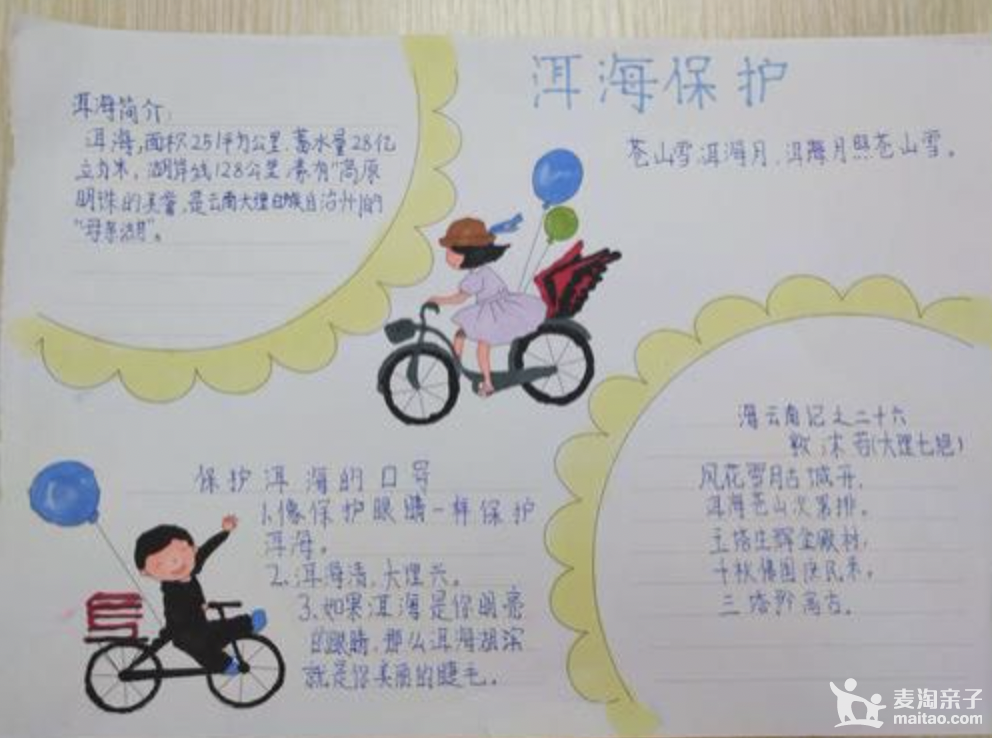 洱海保护
苍山雪,洱海月,洱海月照苍山雪。
洱海简介:
洱海,面积251平方公里,蓄水量28亿
立方米,湖岸线128公里,素有"高原
明珠的美誉,是云南大理白族自治州的
"母亲湖"。
保护洱海的口号
1.像保护眼睛一样保护
洱海。
2.洱海清,大理兴。
3.如果洱海是你明亮
的眼睛,那么洱海湖滨
就是你美丽的睫毛。
云南记之二十六
沫若(大理七绝)
风花雪月古城开,
洱海苍山次第排。
生辉金殿
千秋
三塔
麦淘亲子
maitao.com